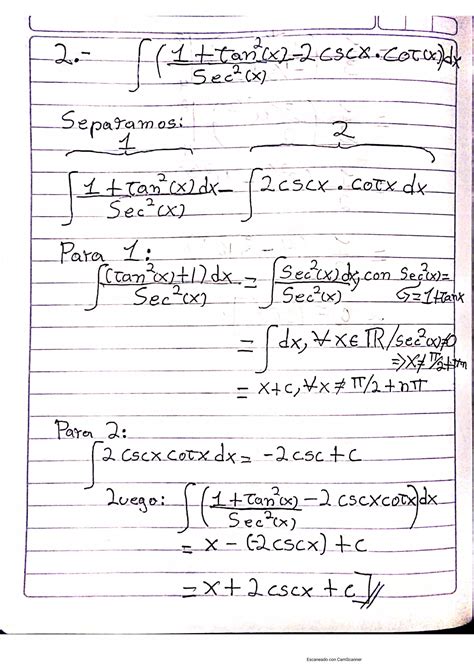 2.- ∫(1+tan²(x)/Sec²(x) - 2cscx·cot(x))dx
Separamos:
1 2
∫ 1+tan²(x)/Sec²(x) dx - ∫2cscx·cotx dx
Para 1:
∫(tan²(x)+1)/Sec²(x) dx = ∫Sec²(x)/Sec²(x) dx, con Sec²(x)=
=1+tanx
= ∫dx, ∀x∈ℝ/sec²(x)≠0
⇒x≠π/2+πn
= x+c, ∀x≠π/2+nπ
Para 2:
∫2cscxcotxdx = -2csc+c
Luego: ∫(1+tan²(x)/Sec²(x) - 2cscxcotx)dx
= x-(-2cscx)+c
= x+2cscx+c
Escaneado con CamScanner